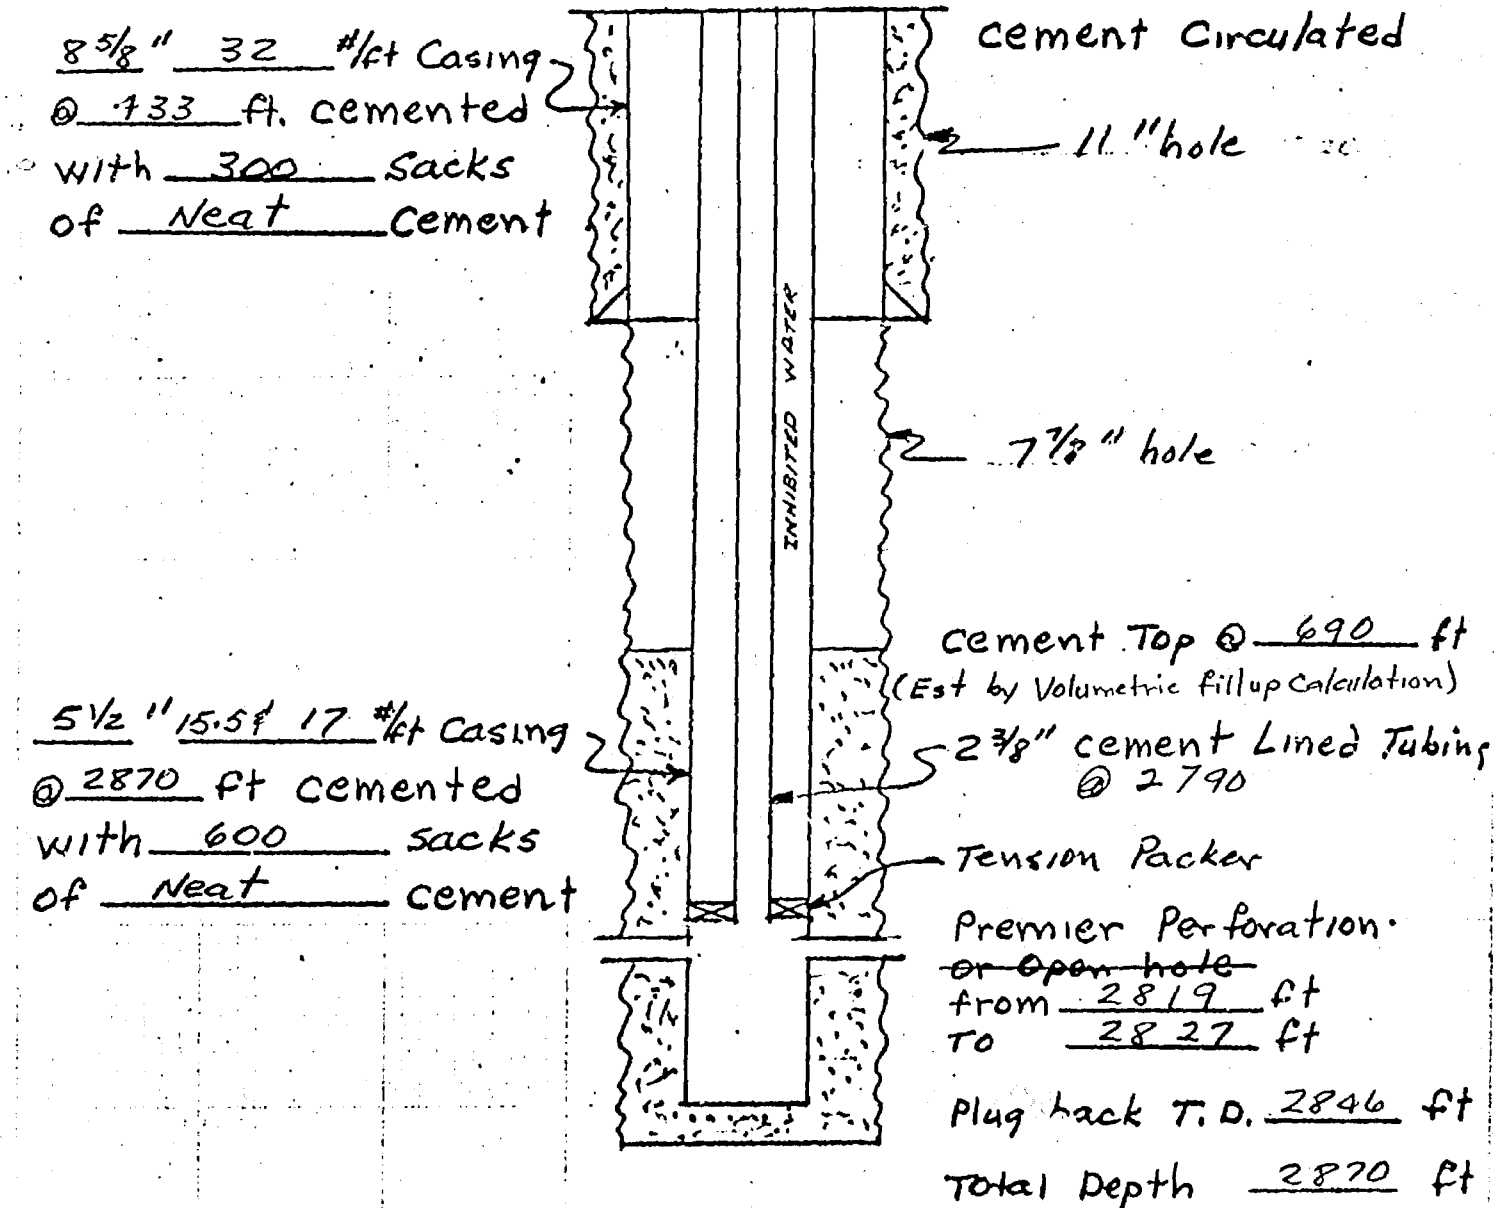 8 5/8" 32 #/ft Casing
@ 433 ft. cemented
with 300 Sacks
of Neat Cement
cement Circulated
11" hole
INHIBITED WATER
7 7/8" hole
cement Top @ 690 ft
(Est by Volumetric fillup Calculation)
5 1/2" 15.5 & 17 #/ft Casing
@ 2870 ft cemented
with 600 sacks
of Neat cement
2 3/8" cement Lined Tubing
@ 2790
Tension Packer
Premier Perforation.
or Open hole
from 2819 ft
To 2827 ft
Plug back T.D. 2846 ft
Total Depth 2870 ft